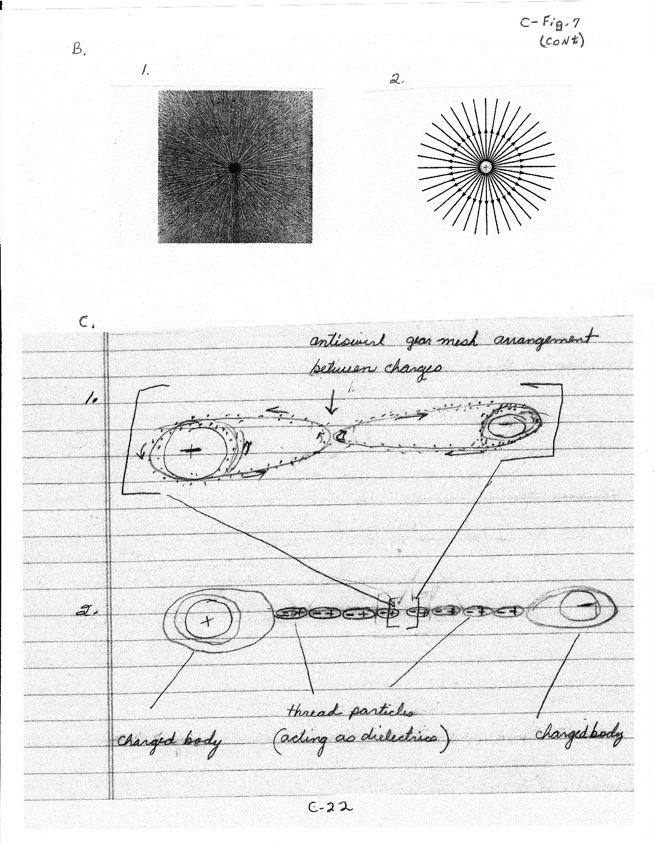 C-Fig. 7
(CONt)
B.
1.
2.
+
C.
antiswirl gear mesh arrangement
between charges
1.
+
-
2.
+
- + - + - + - + - + - + - + - +
-
thread particles
(acting as dielectrics)
charged body
charged body
C-22